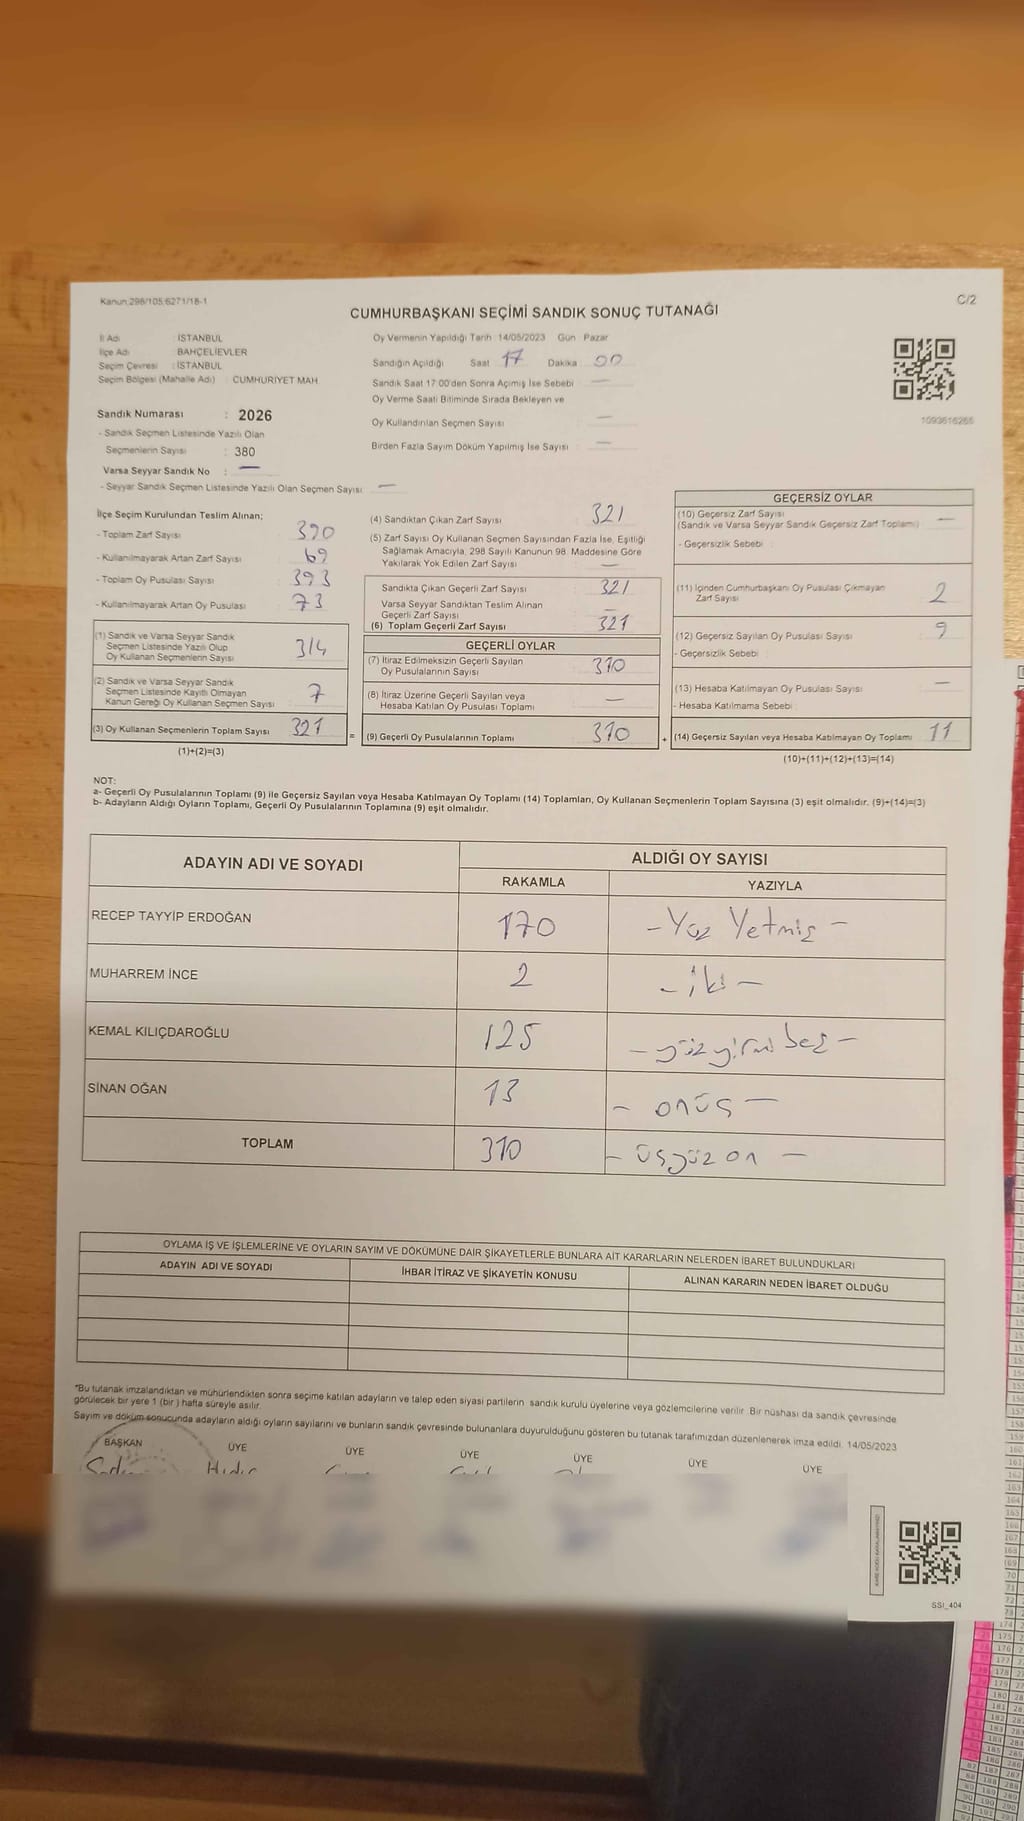 Kanun:298/105,6271/18-1
C/2
CUMHURBAŞKANI SEÇİMİ SANDIK SONUÇ TUTANAĞI
İl Adı : İSTANBUL
İlçe Adı : BAHÇELİEVLER
Seçim Çevresi : İSTANBUL
Seçim Bölgesi (Mahalle Adı) : CUMHURİYET MAH
Oy Vermenin Yapıldığı Tarih 14/05/2023 Gün Pazar
Sandığın Açıldığı Saat 17 Dakika 00
Sandık Saat 17:00'den Sonra Açılmış İse Sebebi —
Oy Verme Saati Bitiminde Sırada Bekleyen ve
Oy Kullandırılan Seçmen Sayısı —
Birden Fazla Sayım Döküm Yapılmış İse Sayısı —
1093616265
Sandık Numarası : 2026
- Sandık Seçmen Listesinde Yazılı Olan
Seçmenlerin Sayısı : 380
Varsa Seyyar Sandık No : —
- Seyyar Sandık Seçmen Listesinde Yazılı Olan Seçmen Sayısı —
İlçe Seçim Kurulundan Teslim Alınan;
- Toplam Zarf Sayısı 390
- Kullanılmayarak Artan Zarf Sayısı 69
- Toplam Oy Pusulası Sayısı 393
- Kullanılmayarak Artan Oy Pusulası 73
(1) Sandık ve Varsa Seyyar Sandık
Seçmen Listesinde Yazılı Olup
Oy Kullanan Seçmenlerin Sayısı 314
(2) Sandık ve Varsa Seyyar Sandık
Seçmen Listesinde Kayıtlı Olmayan
Kanun Gereği Oy Kullanan Seçmen Sayısı 7
(3) Oy Kullanan Seçmenlerin Toplam Sayısı 321
(1)+(2)=(3)
(4) Sandıktan Çıkan Zarf Sayısı 321
(5) Zarf Sayısı Oy Kullanan Seçmen Sayısından Fazla İse, Eşitliği
Sağlamak Amacıyla, 298 Sayılı Kanunun 98. Maddesine Göre
Yakılarak Yok Edilen Zarf Sayısı —
Sandıkta Çıkan Geçerli Zarf Sayısı 321
Varsa Seyyar Sandıktan Teslim Alınan
Geçerli Zarf Sayısı —
(6) Toplam Geçerli Zarf Sayısı 321
GEÇERLİ OYLAR
(7) İtiraz Edilmeksizin Geçerli Sayılan
Oy Pusulalarının Sayısı 310
(8) İtiraz Üzerine Geçerli Sayılan veya
Hesaba Katılan Oy Pusulası Toplamı —
= (9) Geçerli Oy Pusulalarının Toplamı 310
GEÇERSİZ OYLAR
(10) Geçersiz Zarf Sayısı
(Sandık ve Varsa Seyyar Sandık Geçersiz Zarf Toplamı) —
- Geçersizlik Sebebi :
(11) İçinden Cumhurbaşkanı Oy Pusulası Çıkmayan
Zarf Sayısı 2
(12) Geçersiz Sayılan Oy Pusulası Sayısı 9
- Geçersizlik Sebebi :
(13) Hesaba Katılmayan Oy Pusulası Sayısı —
- Hesaba Katılmama Sebebi :
+ (14) Geçersiz Sayılan veya Hesaba Katılmayan Oy Toplamı 11
(10)+(11)+(12)+(13)=(14)
NOT:
a- Geçerli Oy Pusulalarının Toplamı (9) ile Geçersiz Sayılan veya Hesaba Katılmayan Oy Toplamı (14) Toplamları, Oy Kullanan Seçmenlerin Toplam Sayısına (3) eşit olmalıdır. (9)+(14)=(3)
b- Adayların Aldığı Oyların Toplamı, Geçerli Oy Pusulalarının Toplamına (9) eşit olmalıdır.
ADAYIN ADI VE SOYADI
ALDIĞI OY SAYISI
RAKAMLA YAZIYLA
RECEP TAYYİP ERDOĞAN 170 - Yüz Yetmiş -
MUHARREM İNCE 2 - iki -
KEMAL KILIÇDAROĞLU 125 - yüz yirmi beş -
SİNAN OĞAN 13 - onüç -
TOPLAM 310 - üçyüz on -
OYLAMA İŞ VE İŞLEMLERİNE VE OYLARIN SAYIM VE DÖKÜMÜNE DAİR ŞİKAYETLERLE BUNLARA AİT KARARLARIN NELERDEN İBARET BULUNDUKLARI
ADAYIN ADI VE SOYADI İHBAR İTİRAZ VE ŞİKAYETİN KONUSU ALINAN KARARIN NEDEN İBARET OLDUĞU
*Bu tutanak imzalandıktan ve mühürlendikten sonra seçime katılan adayların ve talep eden siyasi partilerin sandık kurulu üyelerine veya gözlemcilerine verilir. Bir nüshası da sandık çevresinde
görülecek bir yere 1 (bir) hafta süreyle asılır.
Sayım ve döküm sonucunda adayların aldığı oyların sayılarını ve bunların sandık çevresinde bulunanlara duyurulduğunu gösteren bu tutanak tarafımızdan düzenlenerek imza edildi. 14/05/2023
BAŞKAN ÜYE ÜYE ÜYE ÜYE ÜYE ÜYE
SSI_404